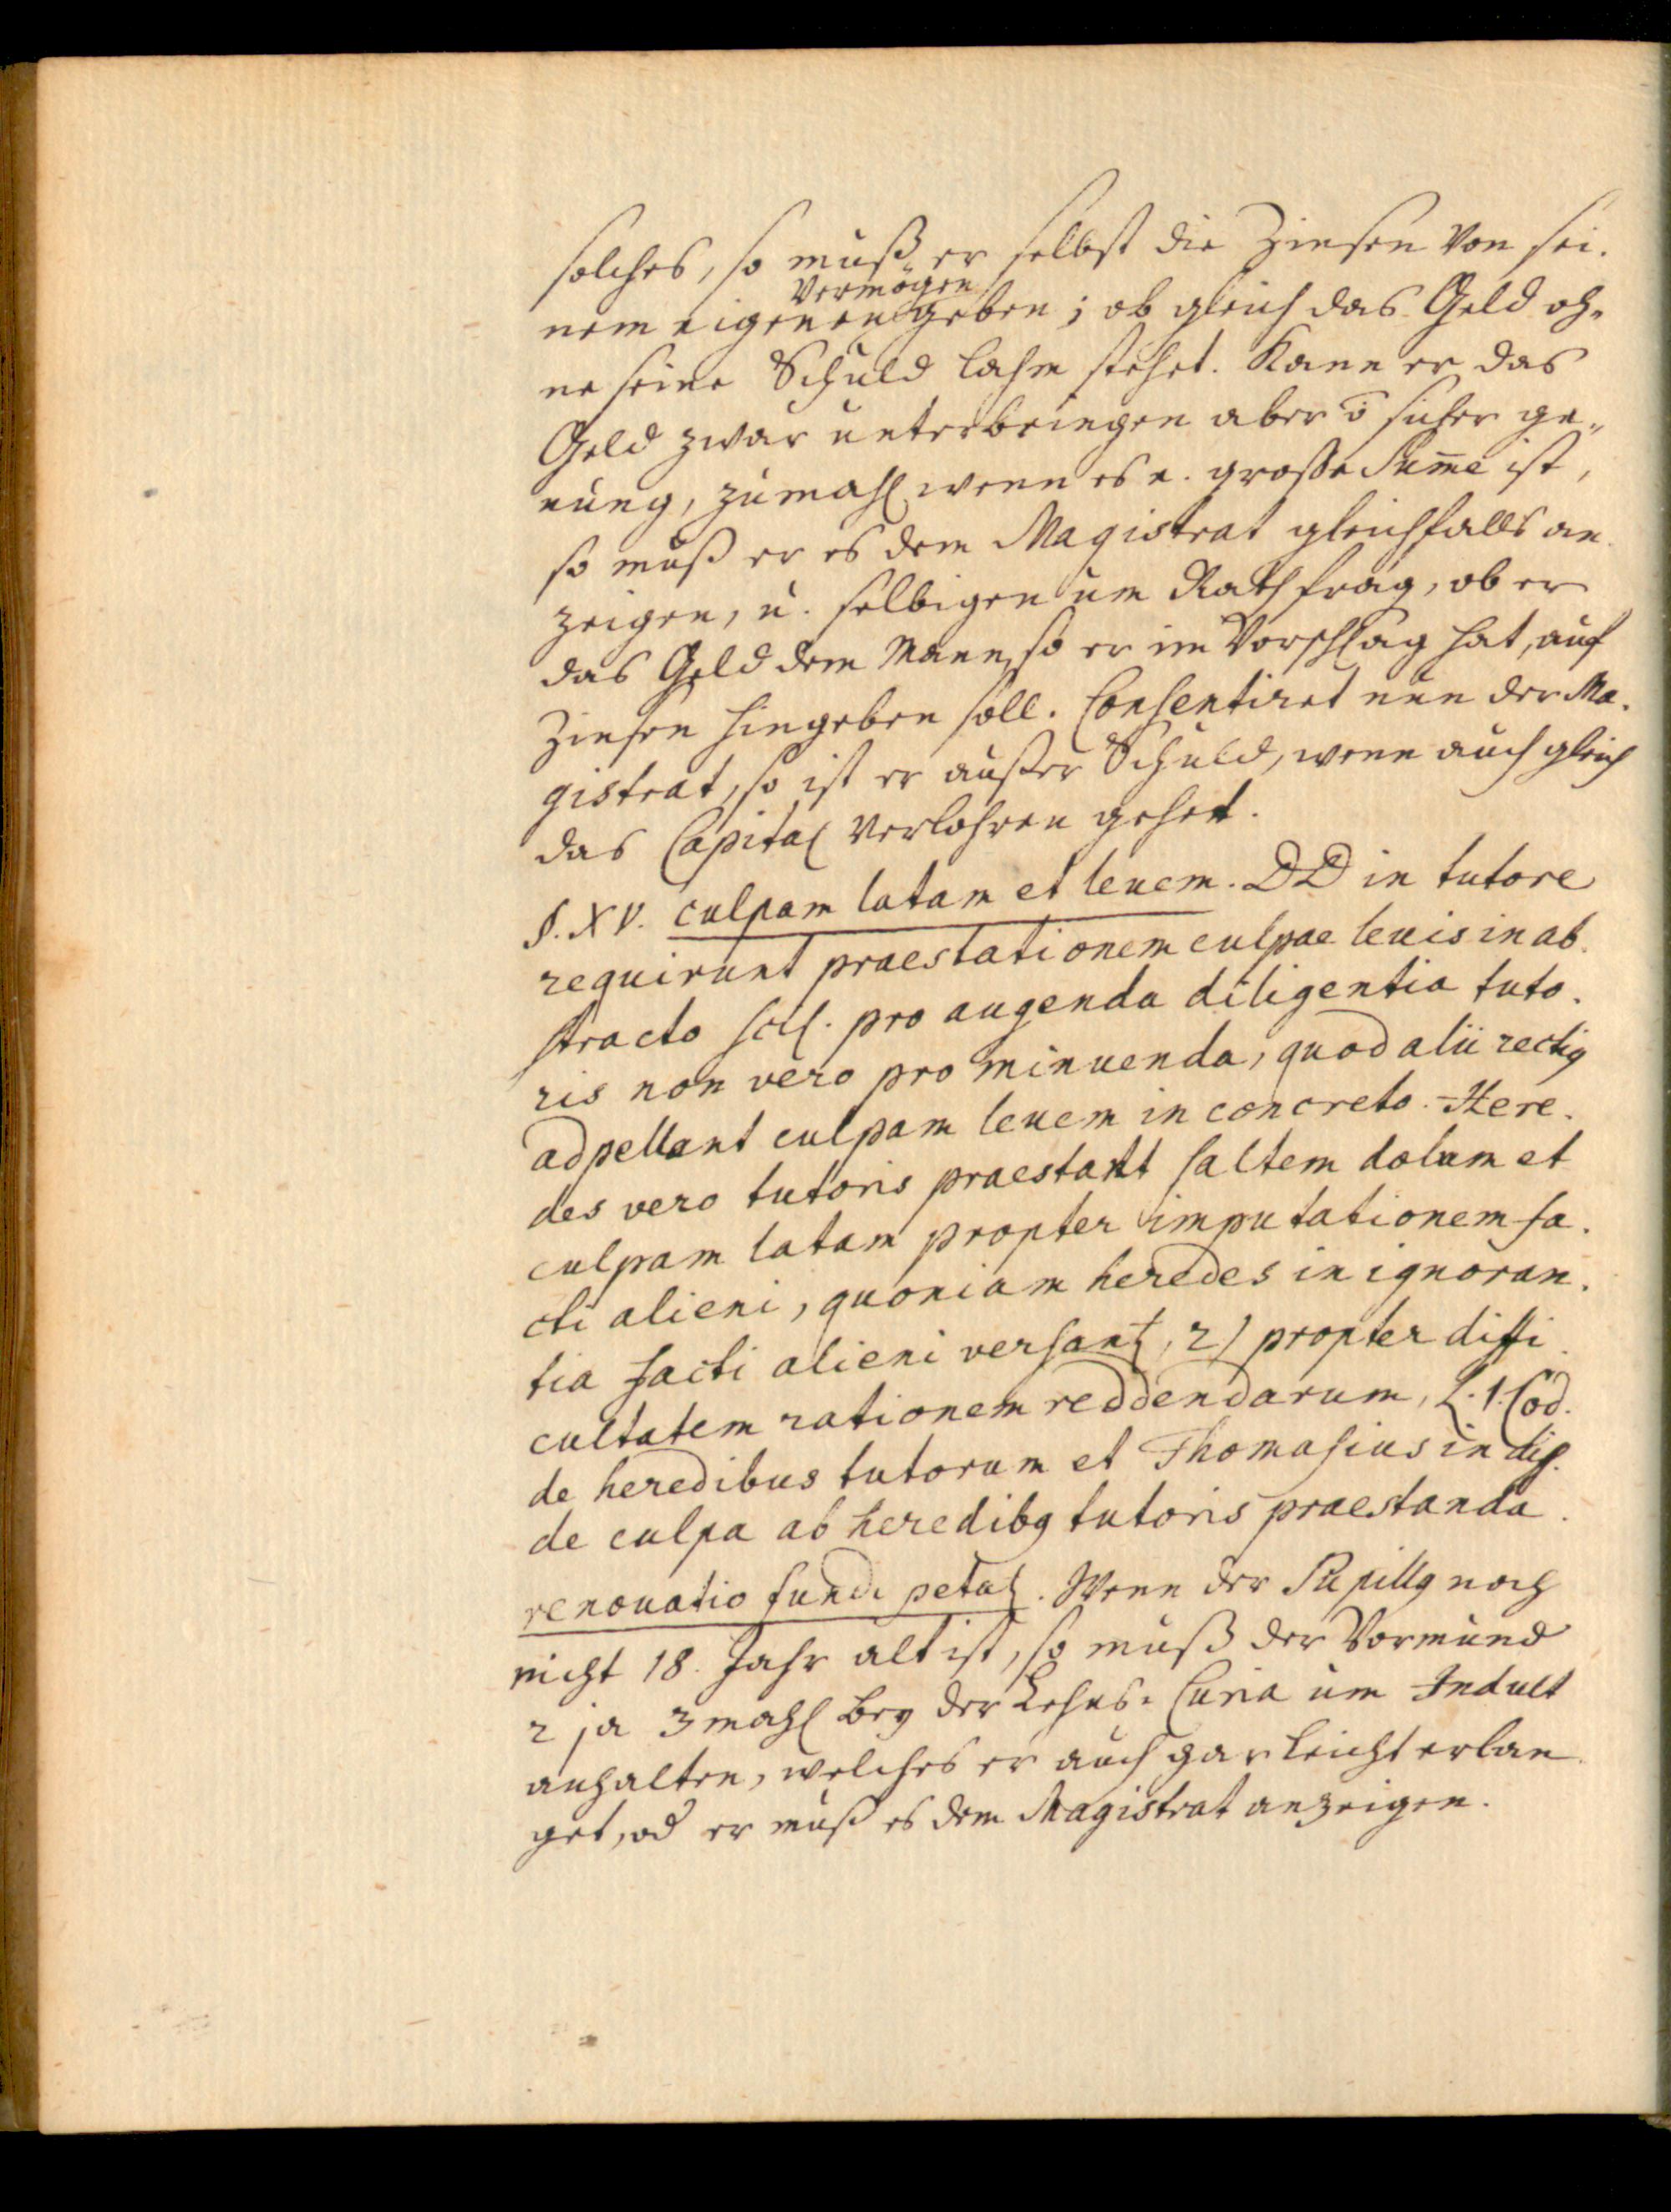 solches, so muß er selbst die Zinsen von sei-
nem eigenen Vermögen geben; ob gleich das Geld oh-
ne seine Schuld lahm stehet. Kann er das
Geld zwar unterbringen aber õ sicher ge-
nung, zumahl wenn es e. große Sum̄e ist,
so muß er es dem Magistrat gleichfalls an-
zeigen, u. selbigen um Rath frag, ob er
das Geld dem Mann, so er im Vorschlag hat, auf
Zinsen hingeben soll. Consentiret nun der Ma-
gistrat, so ist er außer Schuld, wenn auch gleich
das Capital verlohren gehet.
§. XV. culpam latam et leuem. DD in tutore
requirunt praestationem culpae leuis in ab-
stracto scil. pro augenda diligentia tuto-
ris non vero pro minuenda, quod alii rectig
adpellant culpam leuem in concreto. Here-
des vero tutoris praestant saltem dolum et
culpam latam propter imputationem fa-
cti alieni, quoniam heredes in ignoran-
tia facti alieni versant, 2) propter diffi-
cultatem rationem reddendarum, L. 1. Cod.
de heredibus tutorum et Thomasius in diss.
de culpa ab heredibg tutoris praestanda.
renouatio fundi petat. Wenn der Pupillg noch
nicht 18. Jahr alt ist, so muß der Vormund
2 ja 3 mahl bey der Lehns-Curia um Indult
anhalten, welches er auch gar leicht erlan-
get, od er muß es dem Magistrat anzeigen.